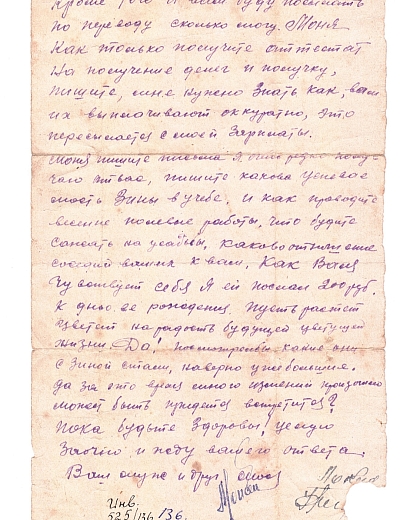 Кроме того я всем буду посылать
по переводу сколько смогу. Моня
Как только получите аттестат
На получение денег и получку,
пишите, мне нужно знать как, вам
их выплачивают аккуратно, это
пересылается с моей Зарплаты.
Моня пишите письма я очень редко полу-
чаю пишите какова успевае
мость Зины в учебе, и как проводите
весение полевые работы, что будите
сажать на усадьбы, каково отношение
соседей ваших к вам, Как Валя
Чувствует себя Я ей послал 200 руб.
К дню ее рождения. Пусть растет
Цветет на радость будущей цветущей
жизни. Да! посмотреть бы какие они
с Зиной стали, наверно уже большие.
да за это время много изменений произошло
может быть придется встретится?
Пока будьте Здоровы! целую
Заочно и жду вашего ответа.
Ваш муж и друг
Инв.
525/136 136.